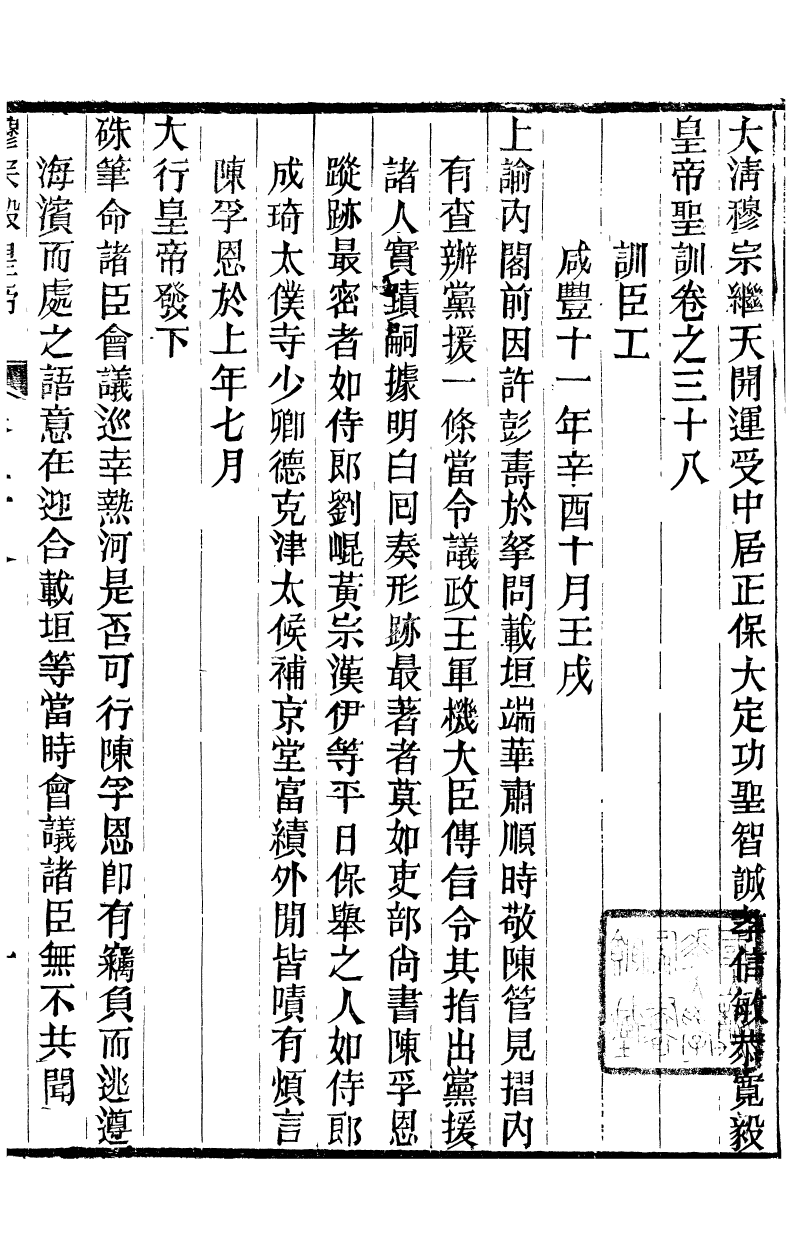 大淸穆宗繼天開運受中居正保大定功聖智誠孝信敏恭寬毅
皇帝聖訓卷之三十八
訓臣工
咸豐十一年辛酉十月壬戌
上諭內閣前因許彭壽於拏問載垣端華肅順時敬陳管見摺內
有查辦黨援一條當令議政王軍機大臣傳旨令其指出黨援
諸人實蹟嗣據明白回奏形跡最著者莫如吏部尙書陳孚恩
蹤跡最密者如侍郎劉崐黃宗漢伊等平日保舉之人如侍郎
成琦太僕寺少卿德克津太候補京堂富績外閒皆嘖有煩言
陳孚恩於上年七月
大行皇帝發下
硃筆命諸臣會議巡幸熱河是否可行陳孚恩卽有竊負而逃遵
海濱而處之語意在迎合載垣等當時會議諸臣無不共聞